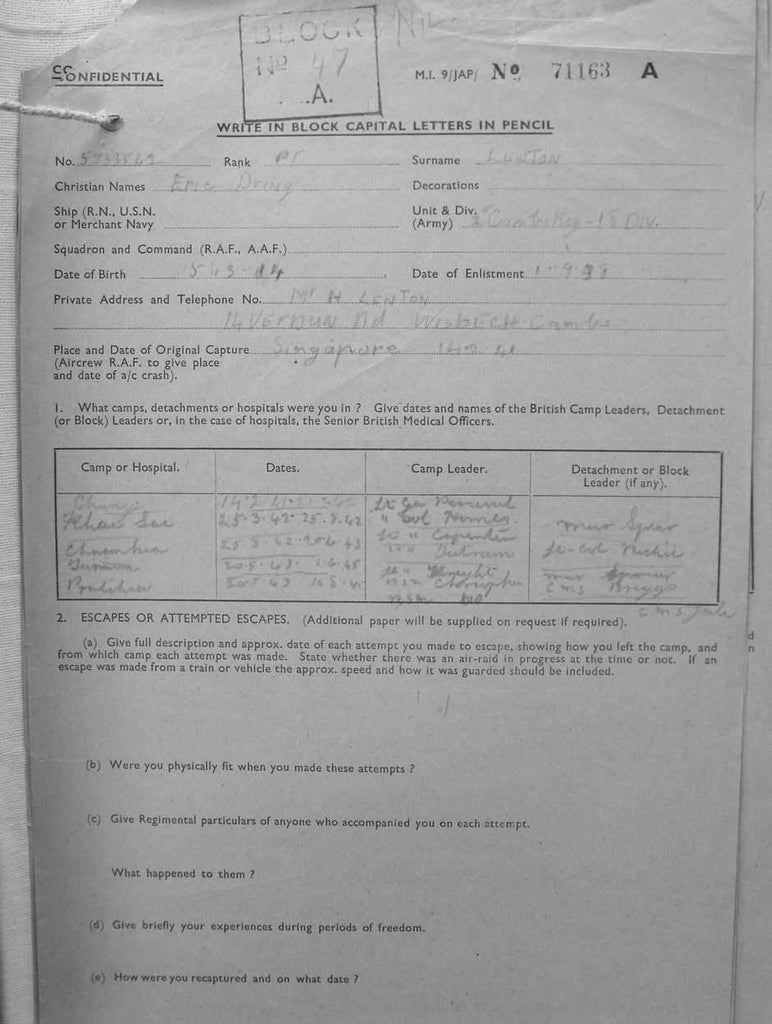 BLOCK NIL.
Nº 47
A.
CONFIDENTIAL
M.I. 9/JAP/ Nº 71163 A
WRITE IN BLOCK CAPITAL LETTERS IN PENCIL
No. 5933562 Rank Pt Surname LENTON
Christian Names Eric Decorations
Ship (R.N., U.S.N. Unit & Div.
or Merchant Navy (Army) 2 Cambridge - 18 DIV.
Squadron and Command (R.A.F., A.A.F.)
Date of Birth Date of Enlistment
Private Address and Telephone No. Mr H LENTON
14 VERDUN Rd WISBECH Cambs
Place and Date of Original Capture Singapore
(Aircrew R.A.F. to give place
and date of a/c crash).
1. What camps, detachments or hospitals were you in ? Give dates and names of the British Camp Leaders, Detachment
(or Block) Leaders or, in the case of hospitals, the Senior British Medical Officers.
Camp or Hospital. Dates. Camp Leader. Detachment or Block
Leader (if any).
Changi Lt Gen Percival
25.3.42 " Col
Lt "
2. ESCAPES OR ATTEMPTED ESCAPES. (Additional paper will be supplied on request if required).
(a) Give full description and approx. date of each attempt you made to escape, showing how you left the camp, and
from which camp each attempt was made. State whether there was an air-raid in progress at the time or not. If an
escape was made from a train or vehicle the approx. speed and how it was guarded should be included.
(b) Were you physically fit when you made these attempts ?
(c) Give Regimental particulars of anyone who accompanied you on each attempt.
What happened to them ?
(d) Give briefly your experiences during periods of freedom.
(e) How were you recaptured and on what date ?